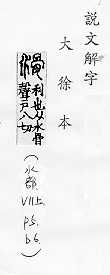 說文解字
大徐本
滑 利也从水骨
聲戶八切
(水部
VII上.
p5.
b6.)